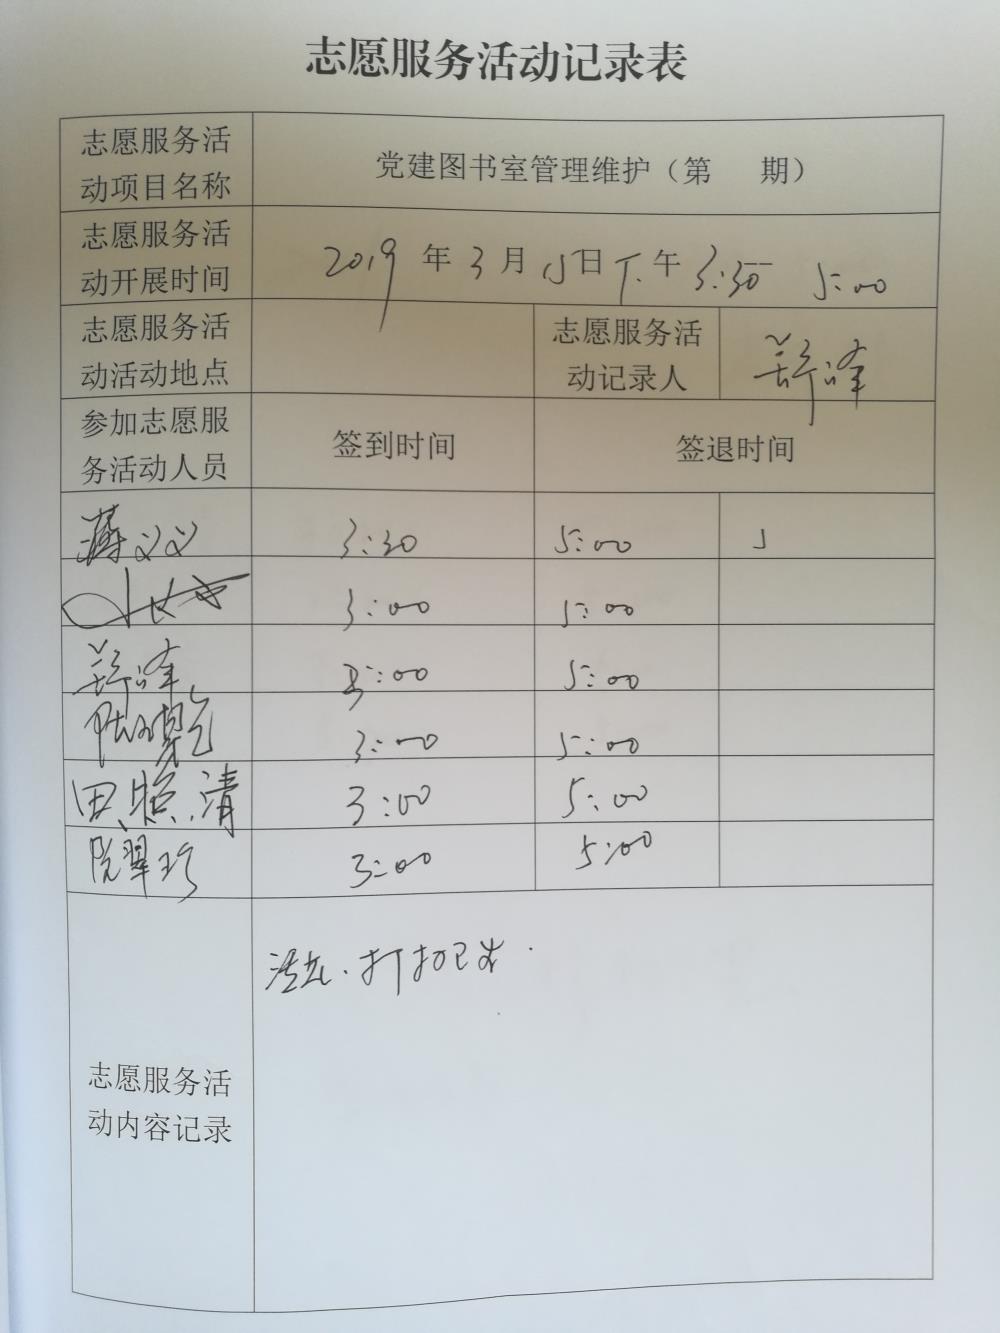 志愿服务活动记录表
志愿服务活
动项目名称
党建图书室管理维护（第 期）
志愿服务活
动开展时间
2019年3月15日下午3:30 5:00
志愿服务活
动活动地点
志愿服务活
动记录人
参加志愿服
务活动人员
签到时间
签退时间
薄义义 3:30 5:00
3:00 5:00
3:00 5:00
3:00 5:00
田照清 3:00 5:00
阮翠珍 3:00 5:00
志愿服务活
动内容记录
打扫卫生.